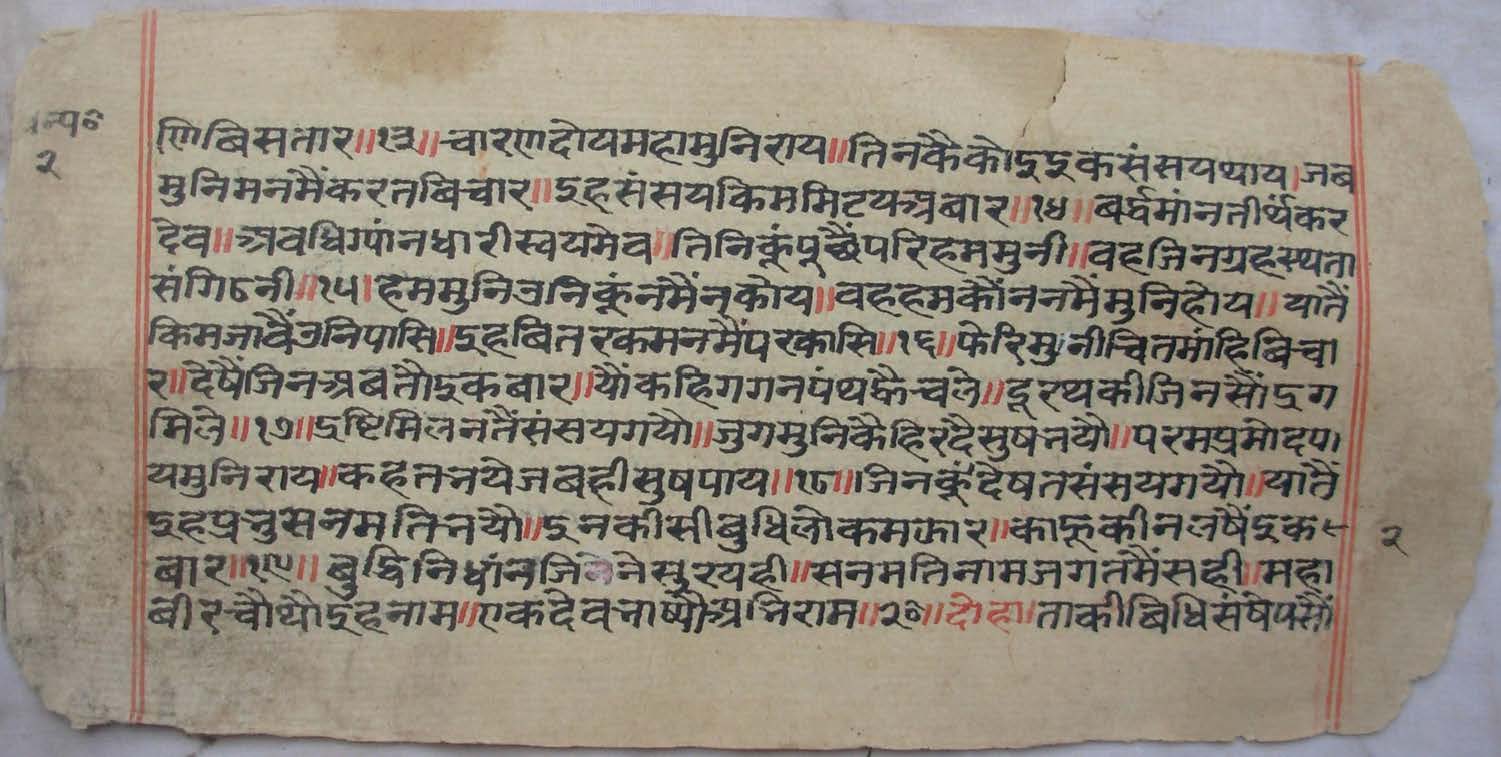 णिबिसतार॥१३॥चारणदोयमहामुनिराय॥तिनकैकोइइकसंसयथाय।जब
२
मुनिमनमैंकरतबिचार॥इहसंसयकिममिटयअबार॥१४॥बर्धमांनतीर्थकर
देव॥अवधिग्यांनधारीस्वयमेव॥तिनिकूंपूछैंपरिहममुनी॥वहजिनग्रहस्थता
संगिठनी॥१५।हममुनिउनिकूंनमैंनकोय॥वहहमकौंननमैंमुनिहोय॥यातैं
किमजावैंउनिपासि॥इहबितरकमनमैंपरकासि॥१६॥फेरिमुनीचितमांहिबिचा
र॥देषैंजिनअबतौइकबार॥यौंकहिगगनपंथह्वैचले॥दूरथकीजिनसौंद्रग
मिले॥१७॥द्रष्टिमिलनतैंसंसयगयौ॥जुगमुनिकैहिरदैसुषभयौ॥परमप्रमोदपा
यमुनिराय॥कहतभयेजबहीसुषपाय॥१८॥जिनकूंदेषतसंसयगयौ॥यातैं
इहप्रभुसनमतिभयौ॥इनकीसीबुधिलोकमझार॥काहूकीनलषैंइक
२
बार॥१९॥बुद्धिनिधांनजिनेसुरयही॥सनमतिनामजगतमैंसही॥महा
बीरचौथौइहनाम॥एकदेवभाष्यौअभिराम॥२०॥दोहा।ताकीबिधिसंषेपसौं